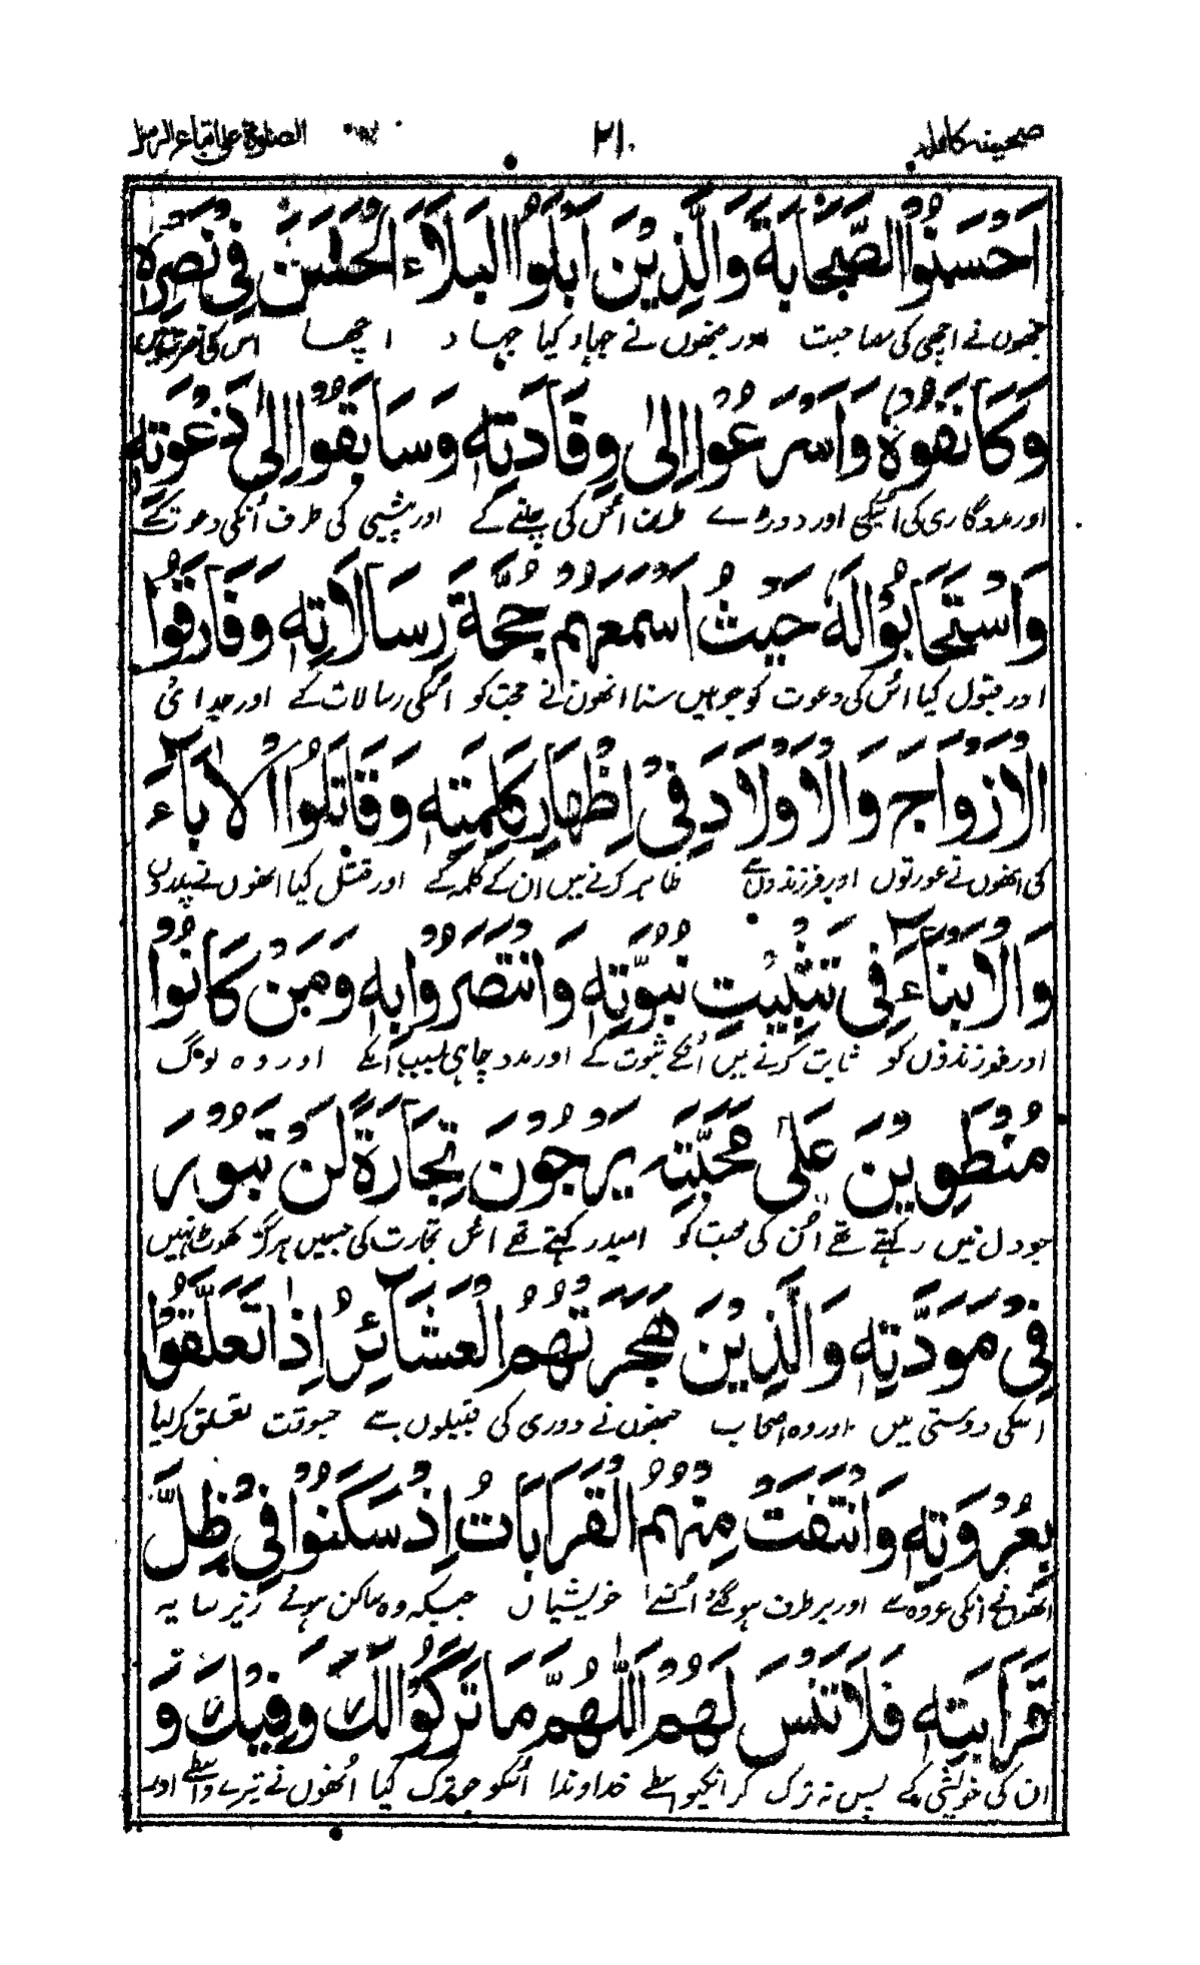 صحیفہ کاملہ ۲۱۰ الصلوة علی اتباع الرسل
اَحْسَنُوا الصَّحَابَةَ وَالَّذِيْنَ اَبْلَوُا الْبَلَاۤءَ الْحَسَنَ فِيْ نَصْرِهٖ
جنھوں نے اچھی کی مصاحبت اور جنھوں نے جہاد کیا جہاد اچھا اس کی نصرت میں
وَكَانَفُوْهُ وَاَسْرَعُوْا اِلٰى وِفَادَتِهٖ وَسَابَقُوْا اِلٰى دَعْوَتِهٖ
اور مددگاری کی انکی اور دوڑے طرف اس کی چلنے کے اور پیشی کی طرف اُنکی دعوت کے
وَاسْتَجَابُوْا لَهٗ حَيْثُ اَسْمَعَهُمْ حُجَّةَ رِسَالَاتِهٖ وَفَارَقُوا
اور قبول کیا اس کی دعوت کو جو ہیں سنا انھوں نے حجت کو اُسکی رسالات کے اور جدائی
الْاَزْوَاجَ وَالْاَوْلَادَ فِيْ اِظْهَارِ كَلِمَتِهٖ وَقَاتَلُوا الْاٰبَاۤءَ
کی انھوں نے عورتوں اور فرزندوں سے ظاہر کرنے میں ان کے کلمہ کے اور قتل کیا انھوں نے پدروں
وَالْاَبْنَاۤءَ فِيْ تَثْبِيْتِ نُبُوَّتِهٖ وَانْتَصَرُوْا بِهٖ وَمَنْ كَانُوْا
اور فرزندوں کو ثابت کرنے میں اُنکے ثبوت کے اور مدد چاہی بسبب انکے اور وہ لوگ
مُنْطَوِيْنَ عَلٰى مَحَبَّتِهٖ يَرْجُوْنَ تِجَارَةً لَنْ تَبُوْرَ
جو دل میں رکھتے تھے اُن کی محبت کو امید رکھتے تھے اس تجارت کی جسمیں ہرگز کھوٹ نہیں
فِيْ مَوَدَّتِهٖ وَالَّذِيْنَ هَجَرَتْهُمُ الْعَشَاۤئِرُ اِذَا تَعَلَّقُوْا
اسکی دوستی میں اور وہ اصحاب جنھوں نے دوری کی قبیلوں سے جسوقت تعلق کرلیا
بِعُرْوَتِهٖ وَانْتَفَتْ مِنْهُمُ الْقَرَابَاتُ اِذْ سَكَنُوْا فِيْ ظِلِّ
انھوں نے انکی عروہ سے اور برطرف ہوگئے اُنسے خویشیاں جبکہ وہ ساکن ہوئے زیر سایہ
قَرَابَتِهٖ فَلَا تَنْسَ لَهُمُ اللّٰهُمَّ مَا تَرَكُوْا لَكَ وَفِيْكَ وَ
ان کی خویشی کے پس نہ ترک کر انکیواسطے خداوندا اُسکو جو ترک کیا اُنھوں نے تیرے واسطے اور